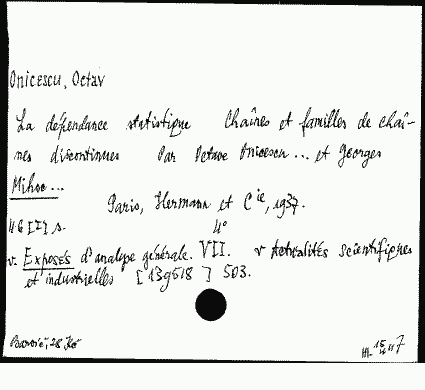 Onicescu, Octav
La dépendance statistique Chaînes et familles de chaî-
nes discontinues Par Octave Onicescu... et Georges
Mihoc...
Paris, Hermann et Cie, 1937.
46 [I] s. 4°
v. Exposés d'analyse générale. VII. v Actualités scientifiques
et industrielles [139518] 503.